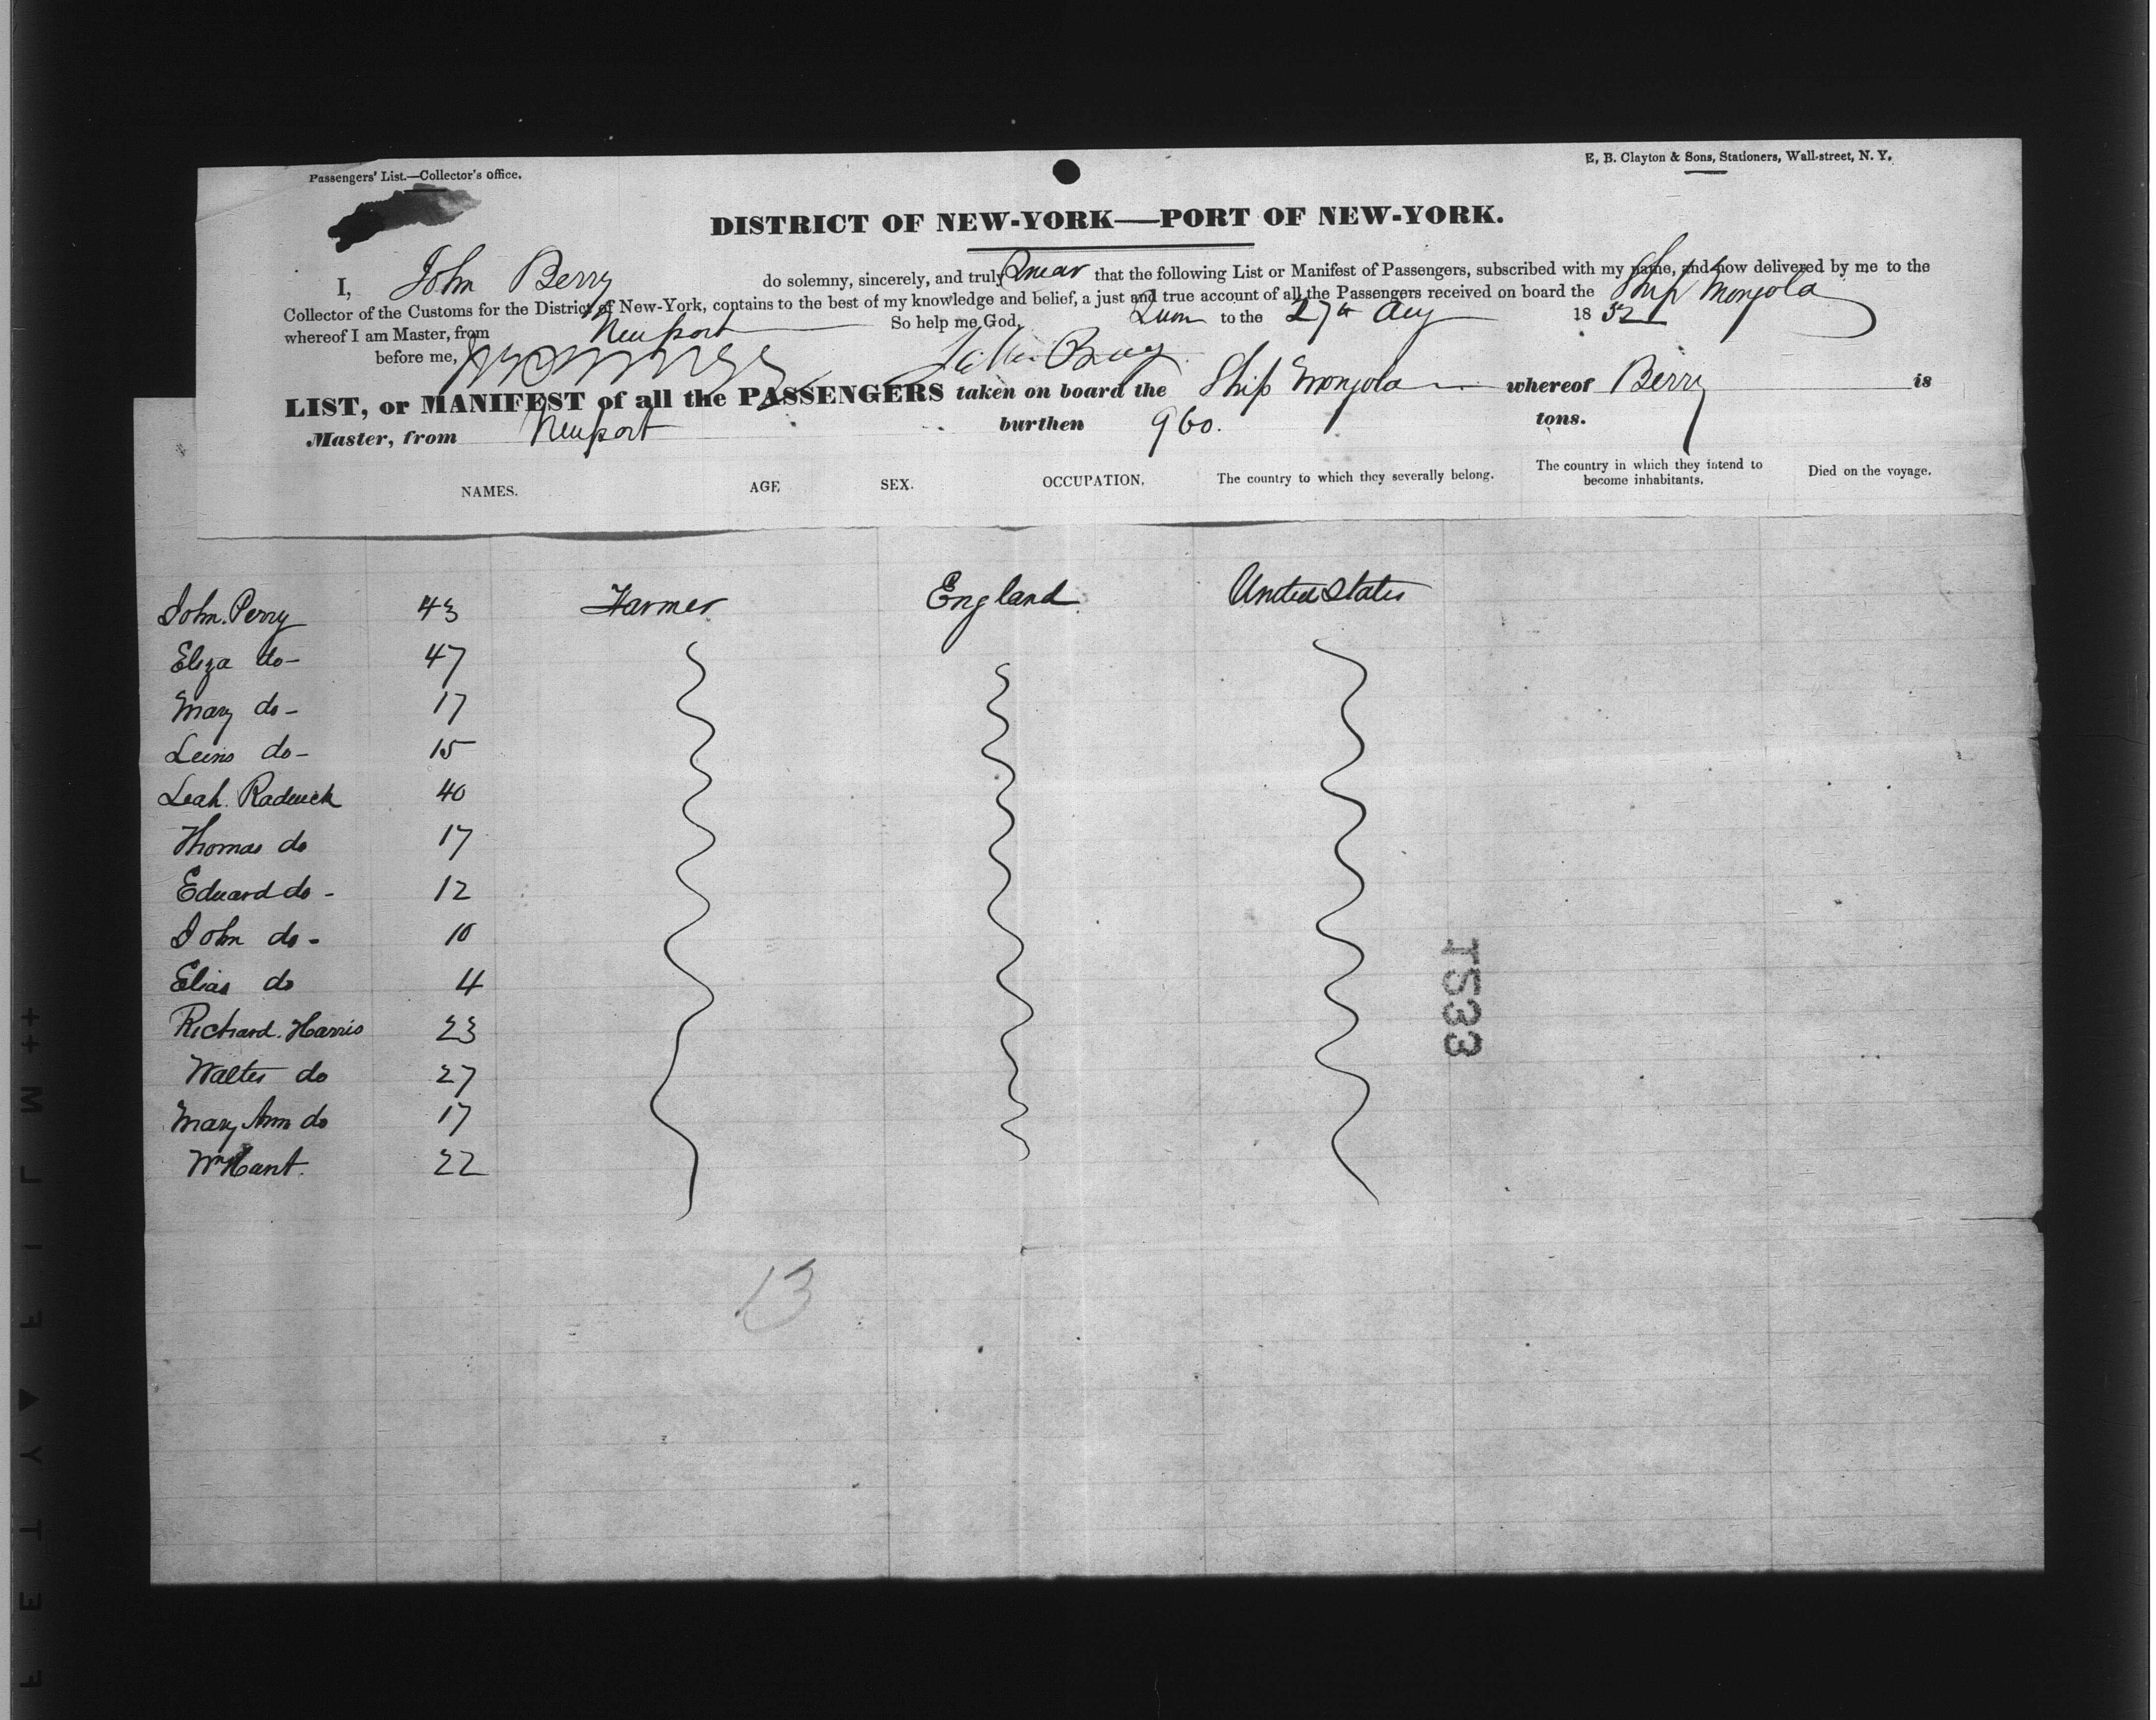 Passengers' List.—Collector's office.
E. B. Clayton & Sons, Stationers, Wall-street, N. Y.
DISTRICT OF NEW-YORK—PORT OF NEW-YORK.
I, John Berry do solemny, sincerely, and truly Swear that the following List or Manifest of Passengers, subscribed with my name, and now delivered by me to the
Collector of the Customs for the District of New-York, contains to the best of my knowledge and belief, a just and true account of all the Passengers received on board the Ship Mongola
whereof I am Master, from Newport So help me God. to the 27th Aug 1852
before me, John Berry
LIST, or MANIFEST of all the PASSENGERS taken on board the Ship Mongola whereof Berry is
Master, from Newport burthen 960. tons.
NAMES. AGE SEX. OCCUPATION. The country to which they severally belong. The country in which they intend to become inhabitants. Died on the voyage.
John. Perry 43 Farmer England United States
Eliza do- 47
Mary do- 17
Lewis do- 15
Leah. 40
Thomas do 17
Edward do- 12
John do- 10
Elias do 4
Richard. Harris 23
Walter do 27
Mary Ann do 17
Wm Hant. 22
TS33
13
FETY▲FILM++